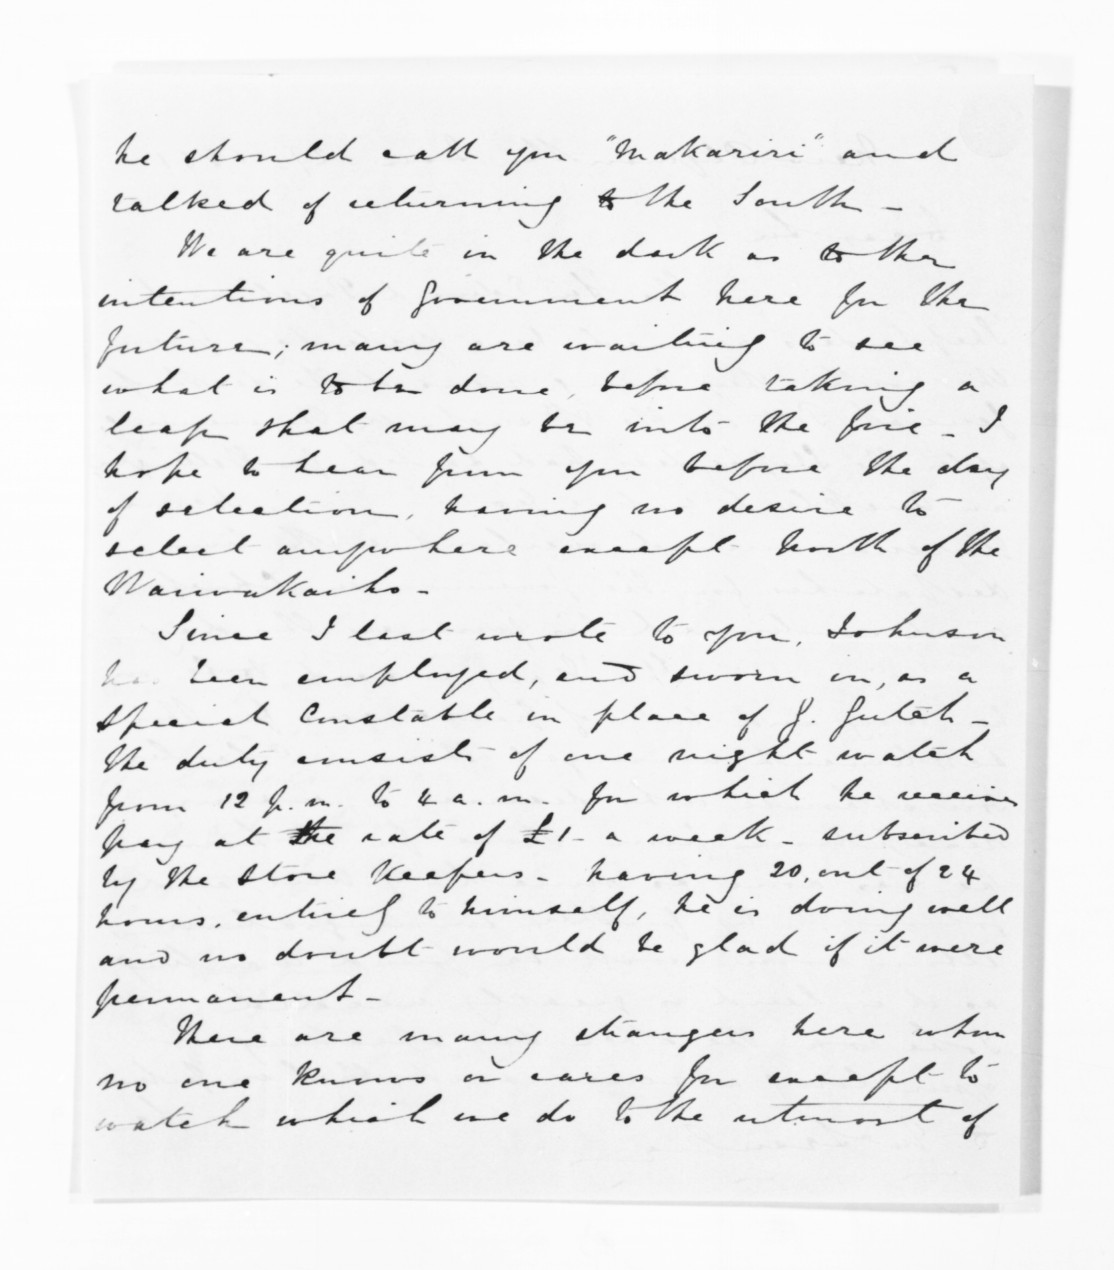 he should call you "Makariri" and
talked of returning to the South -
We are quite in the dark as to the
intentions of Government here for the
future; many are waiting to see
what is to be done, before taking a
leap that may be into the fire - I
hope to hear from you before the day
of selection, having no desire to
select anywhere except North of the
Waiwakaiho -
Since I last wrote to you, Johnson
has been employed, and sworn in, as a
special Constable in place of J. Gutch -
the duty consists of one night watch
from 12 p.m. to 4 a.m. for which he receives
pay at the rate of £1 - a week - subscribed
by the Store Keepers - having 20, out of 24
hours, entirely to himself, he is doing well
and no doubt would be glad if it were
permanent -
There are many strangers here whom
no one knows or cares for except to
watch which we do to the utmost of